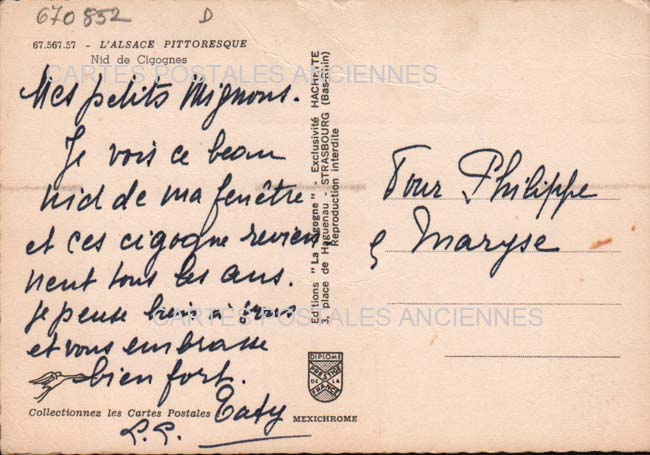 670852 D
67.567.57 - L'ALSACE PITTORESQUE
Nid de Cigognes
CARTES POSTALES ANCIENNES
Mes petits Mignons.
Je vois ce beau
nid de ma fenêtre
et ces cigogne revien
nent tous les ans.
Je pense bien à vous
et vous embrasse
bien fort.
Taty
Collectionnez les Cartes Postales
Editions "La Cigogne" - Exclusivité HACHETTE
3, place de Haguenau - STRASBOURG (Bas-Rhin)
Reproduction interdite
Pour Philippe
Maryse
CARTES POSTALES ANCIENNES
DIPLOME
PRESTIGE
DE LA
FRANCE
MEXICHROME